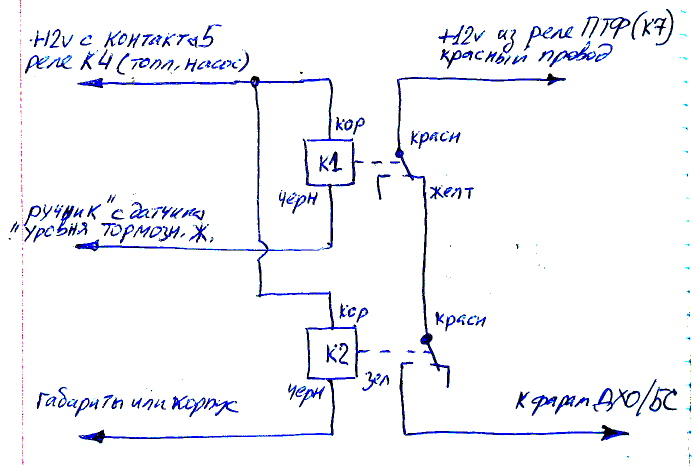 +12v с контакта 5
реле К4 (топл. насос)
+12v из реле ПТФ (К7)
красный провод
кор
красн
К1
черн
желт
"ручник" с датчика
уровня тормозн. ж.
кор
красн
К2
зел
черн
габариты или корпус
к фарам ДХО/БС